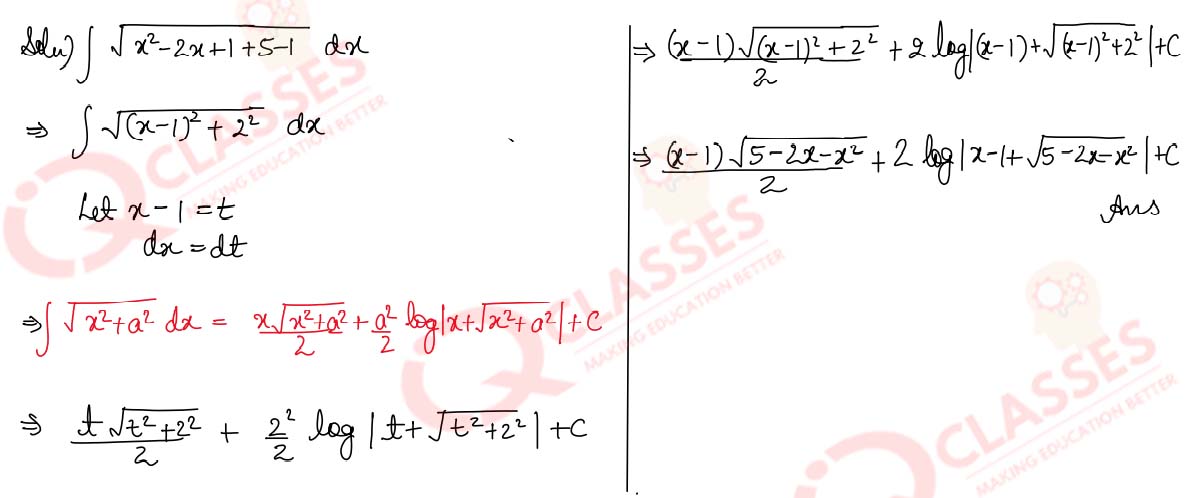 Solu) ∫ √(x²-2x+1+5-1) dx
⇒ ∫ √((x-1)² + 2²) dx
Let x-1 = t
dx = dt
⇒ ∫ √(x²+a²) dx = x√(x²+a²)/2 + a²/2 log|x+√(x²+a²)| + C
⇒ t√(t²+2²)/2 + 2²/2 log|t+√(t²+2²)| + C
⇒ (x-1)√((x-1)²+2²)/2 + 2 log|(x-1)+√((x-1)²+2²)| + C
⇒ (x-1)√(5-2x-x²)/2 + 2 log|x-1+√(5-2x-x²)| + C
Ans
IQ CLASSES
MAKING EDUCATION BETTER
IQ CLASSES
MAKING EDUCATION BETTER
IQ CLASSES
MAKING EDUCATION BETTER